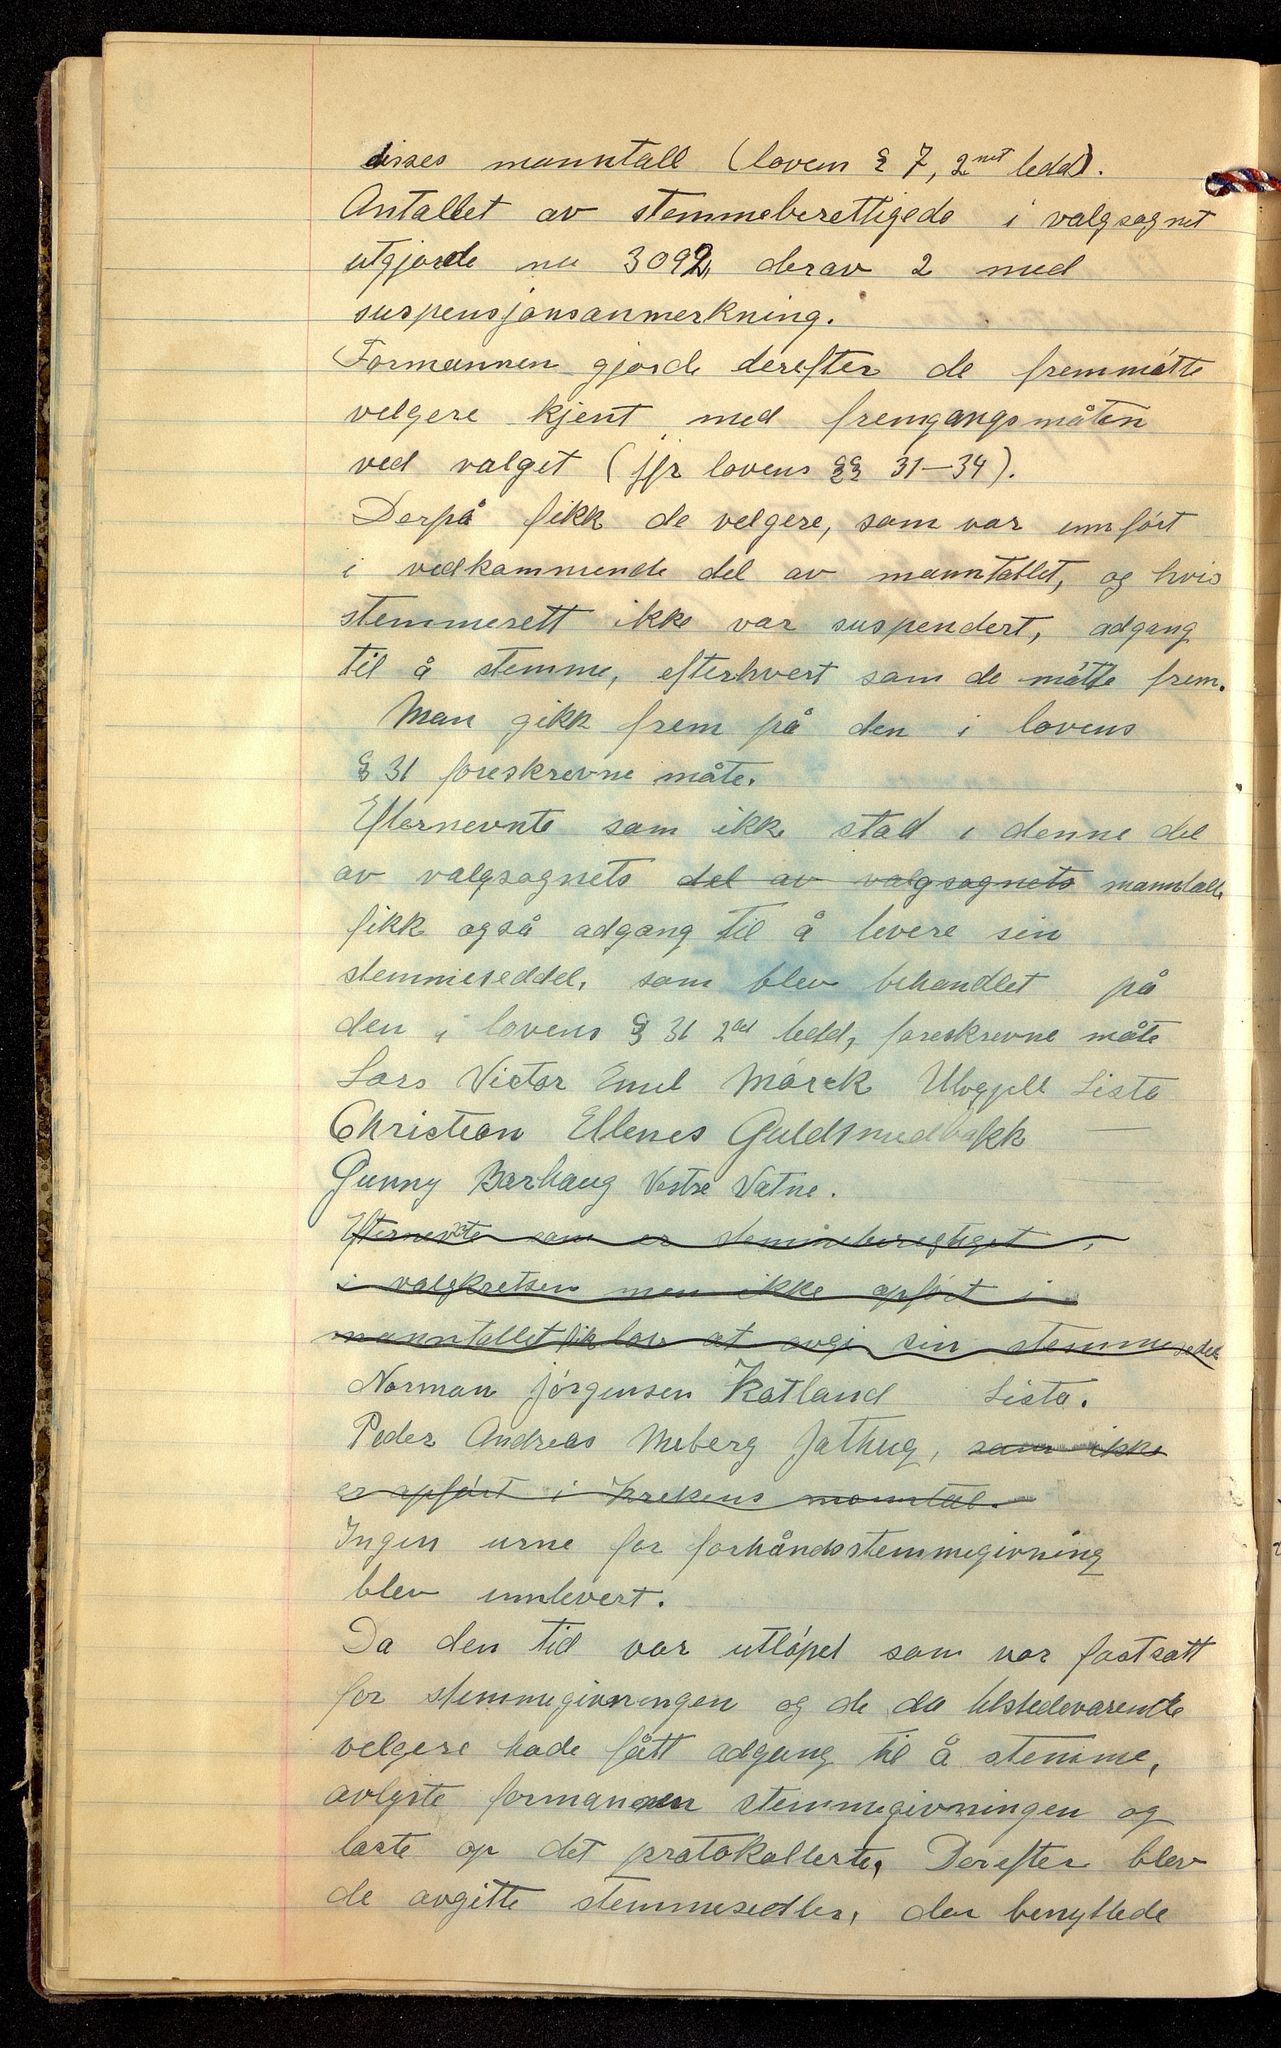 disses manntall (loven § 7, 2net ledd).
Antallet av stemmeberettigede i valgsognet
utgjorde nu 3092, derav 2 med
suspensjonsanmerkning.
Formannen gjorde derefter de fremmøtte
velgere kjent med fremgangsmåten
ved valget (jfr lovens §§ 31-34).
Derpå fikk de velgere, som var innført
i vedkommende del av manntallet, og hvis
stemmerett ikke var suspendert, adgang
til å stemme, efterhvert som de møtte frem.
Man gikk frem på den i lovens
§ 31 foreskrevne måte.
Efternevnte som ikke stod i denne del
av valgsognets del av valgsognets manntall
fikk også adgang til å levere sin
stemmeseddel, som blev behandlet på
den i lovens § 31 2det ledd, foreskrevne måte
Lars Victor Emil Mørck Lista
Christian Ellenes Guldsmedbakk —
Gunny Barhaug Vestre Vatne.
Efternevnte som er stemmeberegtiget
i valgkretsen men ikke opført i
manntallet fik lov at avgi sin stemmesedel
Norman Jørgensen Katland Lista.
Peder Andreas Meberg Jathug, som ikke
er opført i krekens manntal.
Ingen urne for forhåndsstemmegivning
blev innlevert.
Da den tid var utløpet som var fastsatt
for stemmegivningen og de da tilstedevarende
velgere hade fått adgang til å stemme,
avlyste formannen stemmegivningen og
laste op det protokollerte. Derefter blev
de avgitte stemmesedler, den benyttede